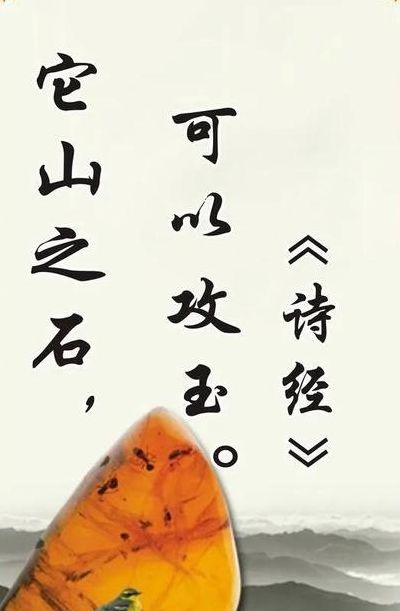 它山之石，
可以攻玉。
《诗经》